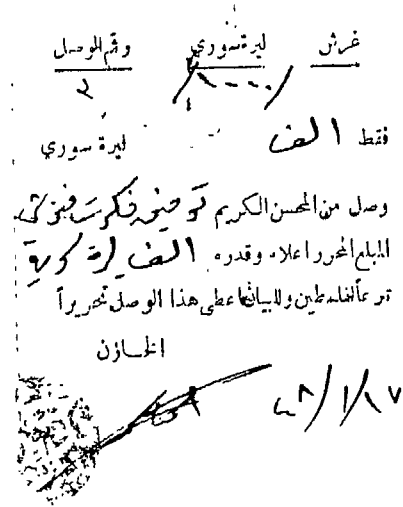 غرش ليرة سوري رقم الوصل
/١٠٠٠/ ٢
فقط الف ليرة سوري
وصل من المحسن الكريم توفيق فكرت
المبلغ المحرر اعلاه وقدره الف ليرة سورية
تبرعاً لفلسطين وللبيان اعطي هذا الوصل تحريراً
الخازن
٤٨/١/١٧